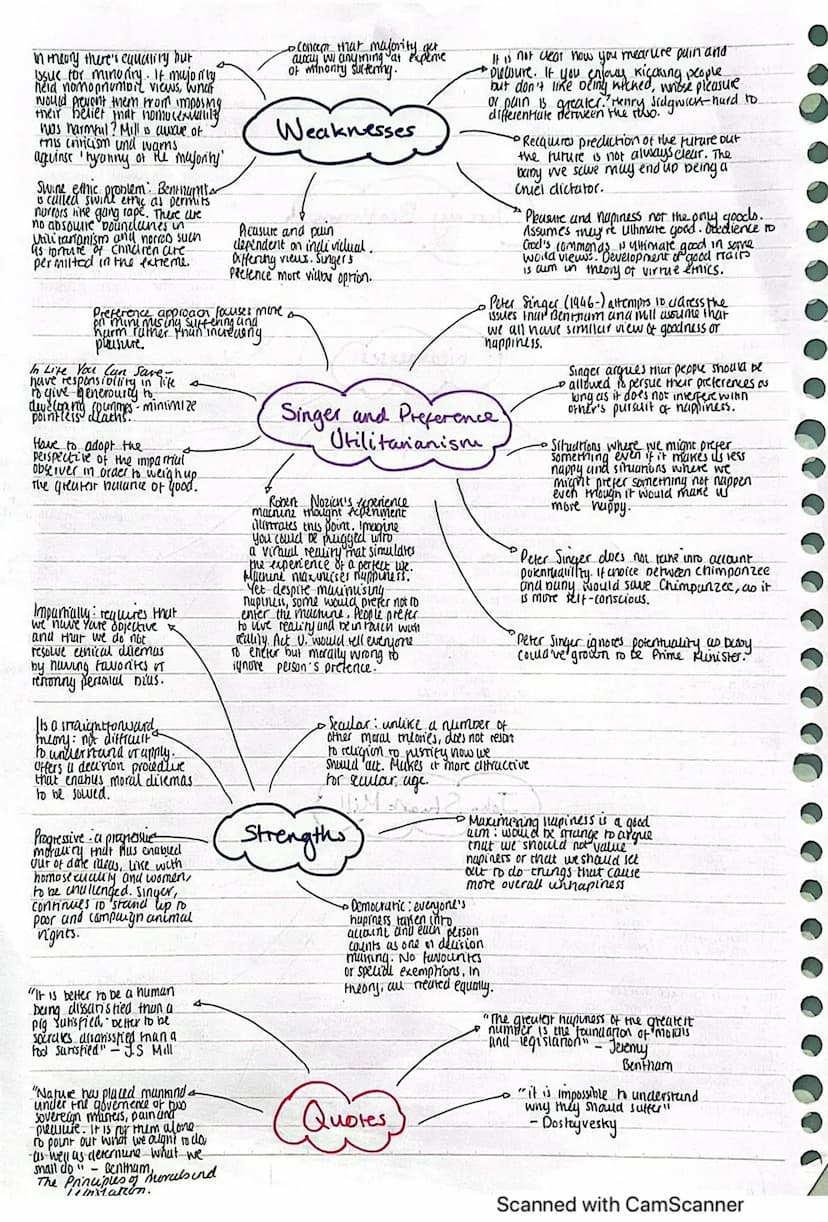 Weaknesses
In theory there's equality but
issue for minority. If majority
held homophobic views, what
would prevent them from imposing
their belief that homosexuality
was harmful? Mill is aware of
this criticism and warns
against 'tyranny of the majority'
Concept that majority get
away w/ anything at expense
of minority suffering.
It is not clear how you measure pain and
pleasure. If you enjoy kicking people
but don't like being kicked, whose pleasure
or pain is greater? Henry Sidgwick - hard to
differentiate between the two.
Requires prediction of the future but
the future is not always clear. The
baby we save may end up being a
cruel dictator.
Swine ethic problem: Bentham's
is called swine ethic as permits
horrors like gang rape. There are
no absolute boundaries in
Utilitarianism and horrors such
as torture of children are
permitted in the extreme.
Pleasure and pain
dependent on individual.
Differing views. Singer's
Prefence more viable option.
Pleasure and hapiness not the only goods.
Assumes they're ultimate good. Obedience to
God's commands is ultimate good in some
world views. Development of good traits
is aim in theory of virtue ethics.
Singer and Preference
Utilitarianism
Preference approach focuses more
on minimising suffering and
harm rather than increasing
pleasure.
Peter Singer (1946-) attempts to adress the
issues that Bentham and Mill assume that
we all have similar view of goodness or
happiness.
In Life You Can Save -
have responsibility in life
to give generously to
developing countries - minimize
pointless deaths.
Singer argues that people should be
allowed to persue their preferences as
long as it does not interfere with
other's pursuit of happiness.
Have to adopt the
perspective of the impartial
observer in order to weigh up
the greater balance of good.
Situations where we might prefer
something even if it makes us less
happy and situations where we
might prefer something not happen
even though it would make us
more happy.
Robert Nozick's experience
machine thought experiment
illustrates this point. Imagine
you could be plugged into
a virtual reality that simulates
the experience of a perfect life.
Machine maximises happiness.
Yet despite maximising
hapiness, some would prefer not to
enter the machine. People prefer
to live reality and be in touch with
reality. Act U. would tell everyone
to enter but morally wrong to
ignore person's prefence.
Peter Singer does not take into account
potentuality. If choice between chimpanzee
and baby would save Chimpanzee, as it
is more self-conscious.
Peter Singer ignores potentuality as baby
could've grown to be Prime Minister.
Strengths
Impartially: requires that
we have pure objective
and that we do not
resolve ethical dilemas
by having favorites or
personal bias.
Its a straightforward
theory: not difficult
to understand or apply.
offers a decision procedure
that enables moral dilemas
to be solved.
Secular: unlike a number of
other moral theories, does not resort
to religion to justify how we
should act. Makes it more attractive
for secular age.
Progressive - a progressive
morality that has enabled
out of date ideas, like with
homosexuality and women,
to be challenged. Singer,
continues to stand up to
poor and campaign animal
rights.
Maximising hapiness is a good
aim: would be strange to argue
that we should not value
hapiness or that we should set
out to do things that cause
more overall unhapiness
Democratic: everyone's
hapiness taken into
account and each person
counts as one in decision
making. No favourites
or special exemptions. In
theory, all treated equally.
Quotes
"It is better to be a human
being dissatisfied than a
pig satisfied: better to be
socrates dissatisfied than a
fool satisfied" - J.S Mill
"The greatest hapiness of the greatest
number is the foundation of morals
and legislation" - Jeremy
Bentham
"Nature has placed mankind
under the governence of two
sovereign masters, pain and
pleasure. It is for them alone
to point out what we ought to do,
as well as determine what we
shall do" - Bentham,
The Principles of Morals and
Legislation.
"it is impossible to understand
why they should suffer"
- Dostoyvesky
Scanned with CamScanner